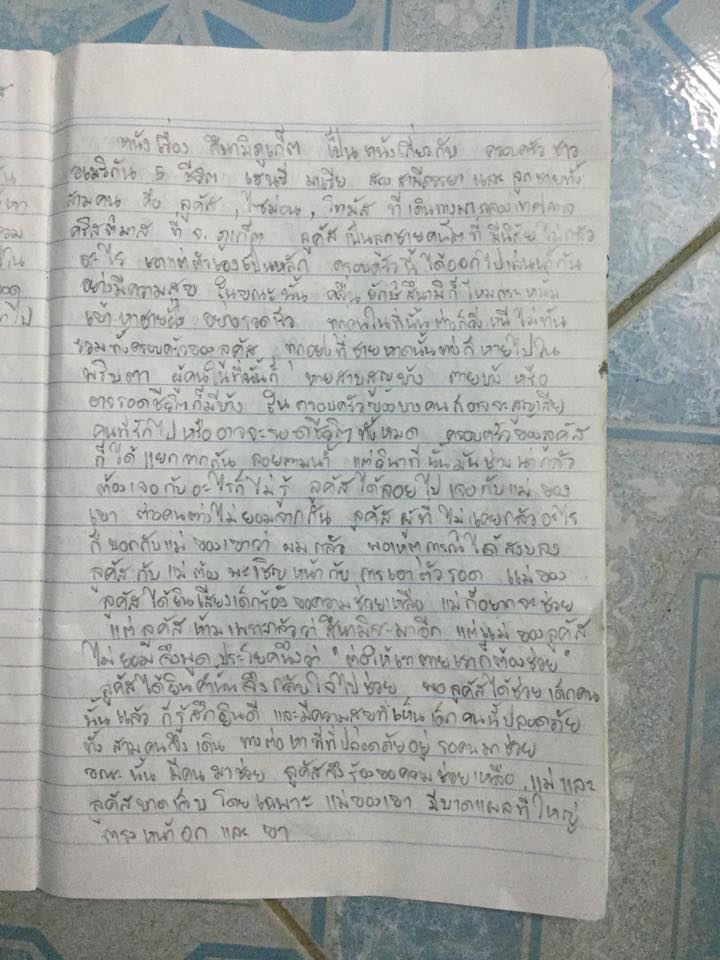 หนังเรื่อง สึนามิภูเก็ต เป็นหนังเกี่ยวกับ ครอบครัวชาว
อเมริกัน 5 ชีวิต เฮนรี่ มาเรีย สองสามีภรรยา และ ลูกชายทั้ง
สามคน คือ ลูคัส , ไซม่อน , โทมัส ที่เดินทางมาฉลองเทศกาล
คริสต์มาส ที่ จ. ภูเก็ต ลูคัสเป็นลูกชายคนโตที่มีนิสัยไม่กลัว
อะไร เอาแต่ตัวเองเป็นหลัก ครอบครัวนี้ได้ออกไปเล่นน้ำกัน
อย่างมีความสุข ในขณะนั้น คลื่นยักษ์สึนามิก็โหมกระหน่ำ
เข้าหาชายฝั่ง อย่างรวดเร็ว ทุกคนในที่นั้นต่างก็วิ่งหนีไม่ทัน
รวมทั้งครอบครัวของลูคัส ทุกอย่างที่ชายหาดนั้นต่างก็หายไปใน
พริบตา ผู้คนในที่นั้นก็ หายสาบสูญบ้าง ตายบ้าง หรือ
อาจรอดชีวิตก็มีบ้าง ในครอบครัวของบางคนก็อาจจะสูญเสีย
คนที่รักไปหรืออาจจะรอดชีวิตทั้งหมด ครอบครัวของลูคัส
ก็ได้แยกจากกัน ลอยตามน้ำ แต่วินาทีนั้นมันช่างน่ากลัว
ต้องเจอกับอะไรก็ไม่รู้ ลูคัสได้ลอยไปเจอกับแม่ของ
เขา ต่างคนต่างไม่ยอมจากกัน ลูคัสผู้ที่ไม่เคยกลัวอะไร
ก็บอกกับแม่ของเขาว่า ผมกลัว พอเหตุการณ์ได้สงบลง
ลูคัสกับแม่ต้องเผชิญหน้ากับการเอาตัวรอด แม่ของ
ลูคัสได้ยินเสียงเด็กร้องขอความช่วยเหลือ แม่ก็อยากจะช่วย
แต่ลูคัสห้ามเพราะกลัวว่าสึนามิจะมาอีก แต่แม่ของลูคัส
ไม่ยอมจึงพูดประโยคนึงว่า "ต่อให้เราตายเราก็ต้องช่วย"
ลูคัสได้ยินคำนั้นจึงกลับใจไปช่วย พอลูคัสได้ช่วยเด็กคน
นั้นแล้ว ก็รู้สึกยินดี และมีความสุขที่เห็นเด็กคนนี้ปลอดภัย
ทั้งสามคนจึงเดินทางต่อหาที่ที่ปลอดภัยอยู่ รอคนมาช่วย
ขณะนั้นมีคนมาช่วย ลูคัสจึงร้องขอความช่วยเหลือ แม่และ
ลูคัสบาดเจ็บ โดยเฉพาะ แม่ของเขา มีบาดแผลที่ใหญ่
ตรงหน้าอก และ ขา